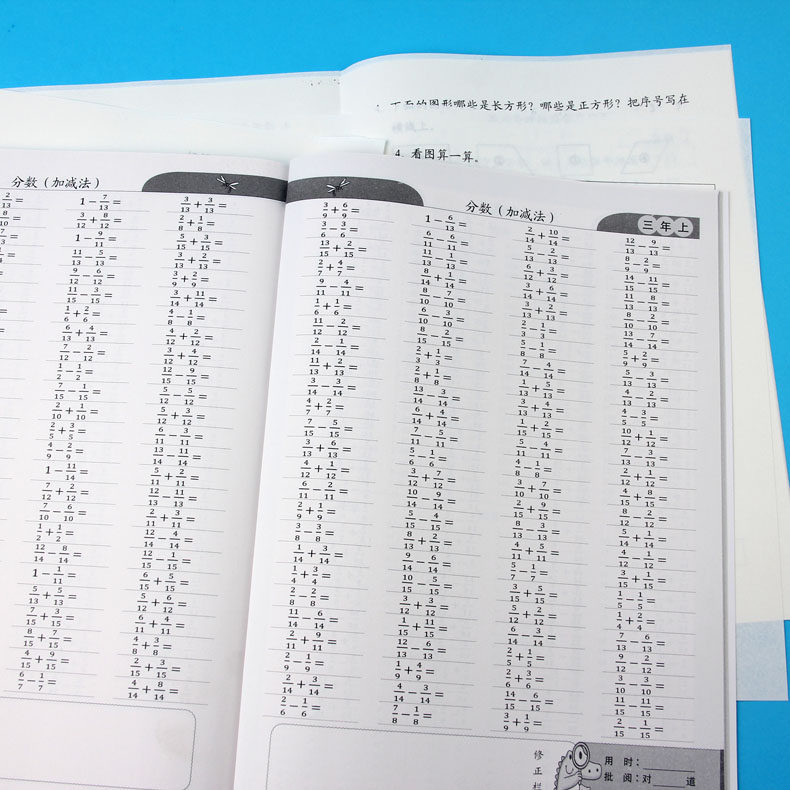 下面的图形哪些是长方形？哪些是正方形？把序号写在
横线上。
4. 看图算一算。
分数（加减法）
1−7/13=
3/12+8/12=
1−9/11=
11/13−5/13=
9/12−6/12=
11/15−3/15=
1/6+2/6=
6/13+4/13=
7/12−2/12=
1/2−1/2=
7/15−1/15=
2/10+1/10=
2/5+3/5=
4/9−2/9=
1−11/14=
7/12+2/12=
7/10−6/10=
1/2+1/2=
12/14−8/14=
1−1/11=
5/13+5/13=
7/15+3/15=
8/15+7/15=
4/15+9/15=
6/7−1/7=
3/13+3/13=
2/8+1/8=
5/15+3/15=
3/13+2/13=
3/9+2/9=
3/14+11/14=
4/8−1/8=
4/12+2/12=
3/12+4/12=
12/15−9/15=
5/12−5/12=
5/12+3/12=
6/11−3/11=
13/14−11/14=
5/11+2/11=
12/13−11/13=
2/11+3/11=
12/14−4/14=
12/15−1/15=
6/15+5/15=
5/12+6/12=
6/11+4/11=
4/8+3/8=
2/15+3/15=
4/14+8/14=
分数（加减法）
三年上
3/9+6/9=
3/6−3/6=
13/15+2/15=
2/7+4/7=
9/11−4/11=
1/6+1/6=
11/12−2/12=
2/14−1/14=
11/12+1/12=
3/14−3/14=
4/7+2/7=
7/15−5/15=
3/13+6/13=
4/12+1/12=
6/11−2/11=
2/9+1/9=
3/8−3/8=
1/14+3/14=
1/4+3/4=
2/8−2/8=
11/14−6/14=
2/11+9/11=
2/9−1/9=
2/14+3/14=
2/6−1/6=
1−6/13=
6/11−6/11=
11/13−1/13=
8/14+1/14=
8/10−7/10=
6/10−3/10=
8/15−2/15=
2/3+1/3=
2/8+1/8=
13/14−3/14=
6/14+4/14=
7/11−5/11=
5/6−1/6=
3/12+7/12=
10/14−9/14=
5/15−4/15=
8/13+2/13=
9/14−6/14=
10/15−5/15=
3/12+3/12=
1/15+11/15=
12/13−6/13=
1/9+4/9=
4/14−3/14=
7/8−1/8=
2/14+10/14=
5/13−2/13=
6/12+3/12=
3/14+6/14=
3/13+2/13=
2/3−1/3=
5/8−1/8=
7/14−4/14=
1/13+5/13=
3/13+4/13=
1/15+2/15=
5/11−4/11=
4/8−1/8=
3/10+7/10=
9/15−2/15=
8/13−3/13=
4/11+5/11=
5/7−1/7=
3/15+5/15=
5/12+2/12=
6/14−3/14=
2/5+1/5=
2/6+3/6=
14/15−6/15=
3/9+1/9=
12/13−9/13=
8/9−2/9=
14/15−11/15=
11/13−8/13=
8/10−2/10=
13/14−7/14=
5/9+2/9=
5/13−3/13=
4/13−2/13=
4/5−3/5=
10/12+1/12=
7/13−3/13=
2/12+4/12=
4/15+8/15=
8/12−2/12=
5/12+1/12=
4/12−1/12=
3/15+1/15=
1/5−1/5=
1/4+2/4=
7/13−6/13=
9/12−2/12=
3/10−3/10=
11/15−11/15=
2/15−1/15=
修正栏
用时：
批阅：对 道